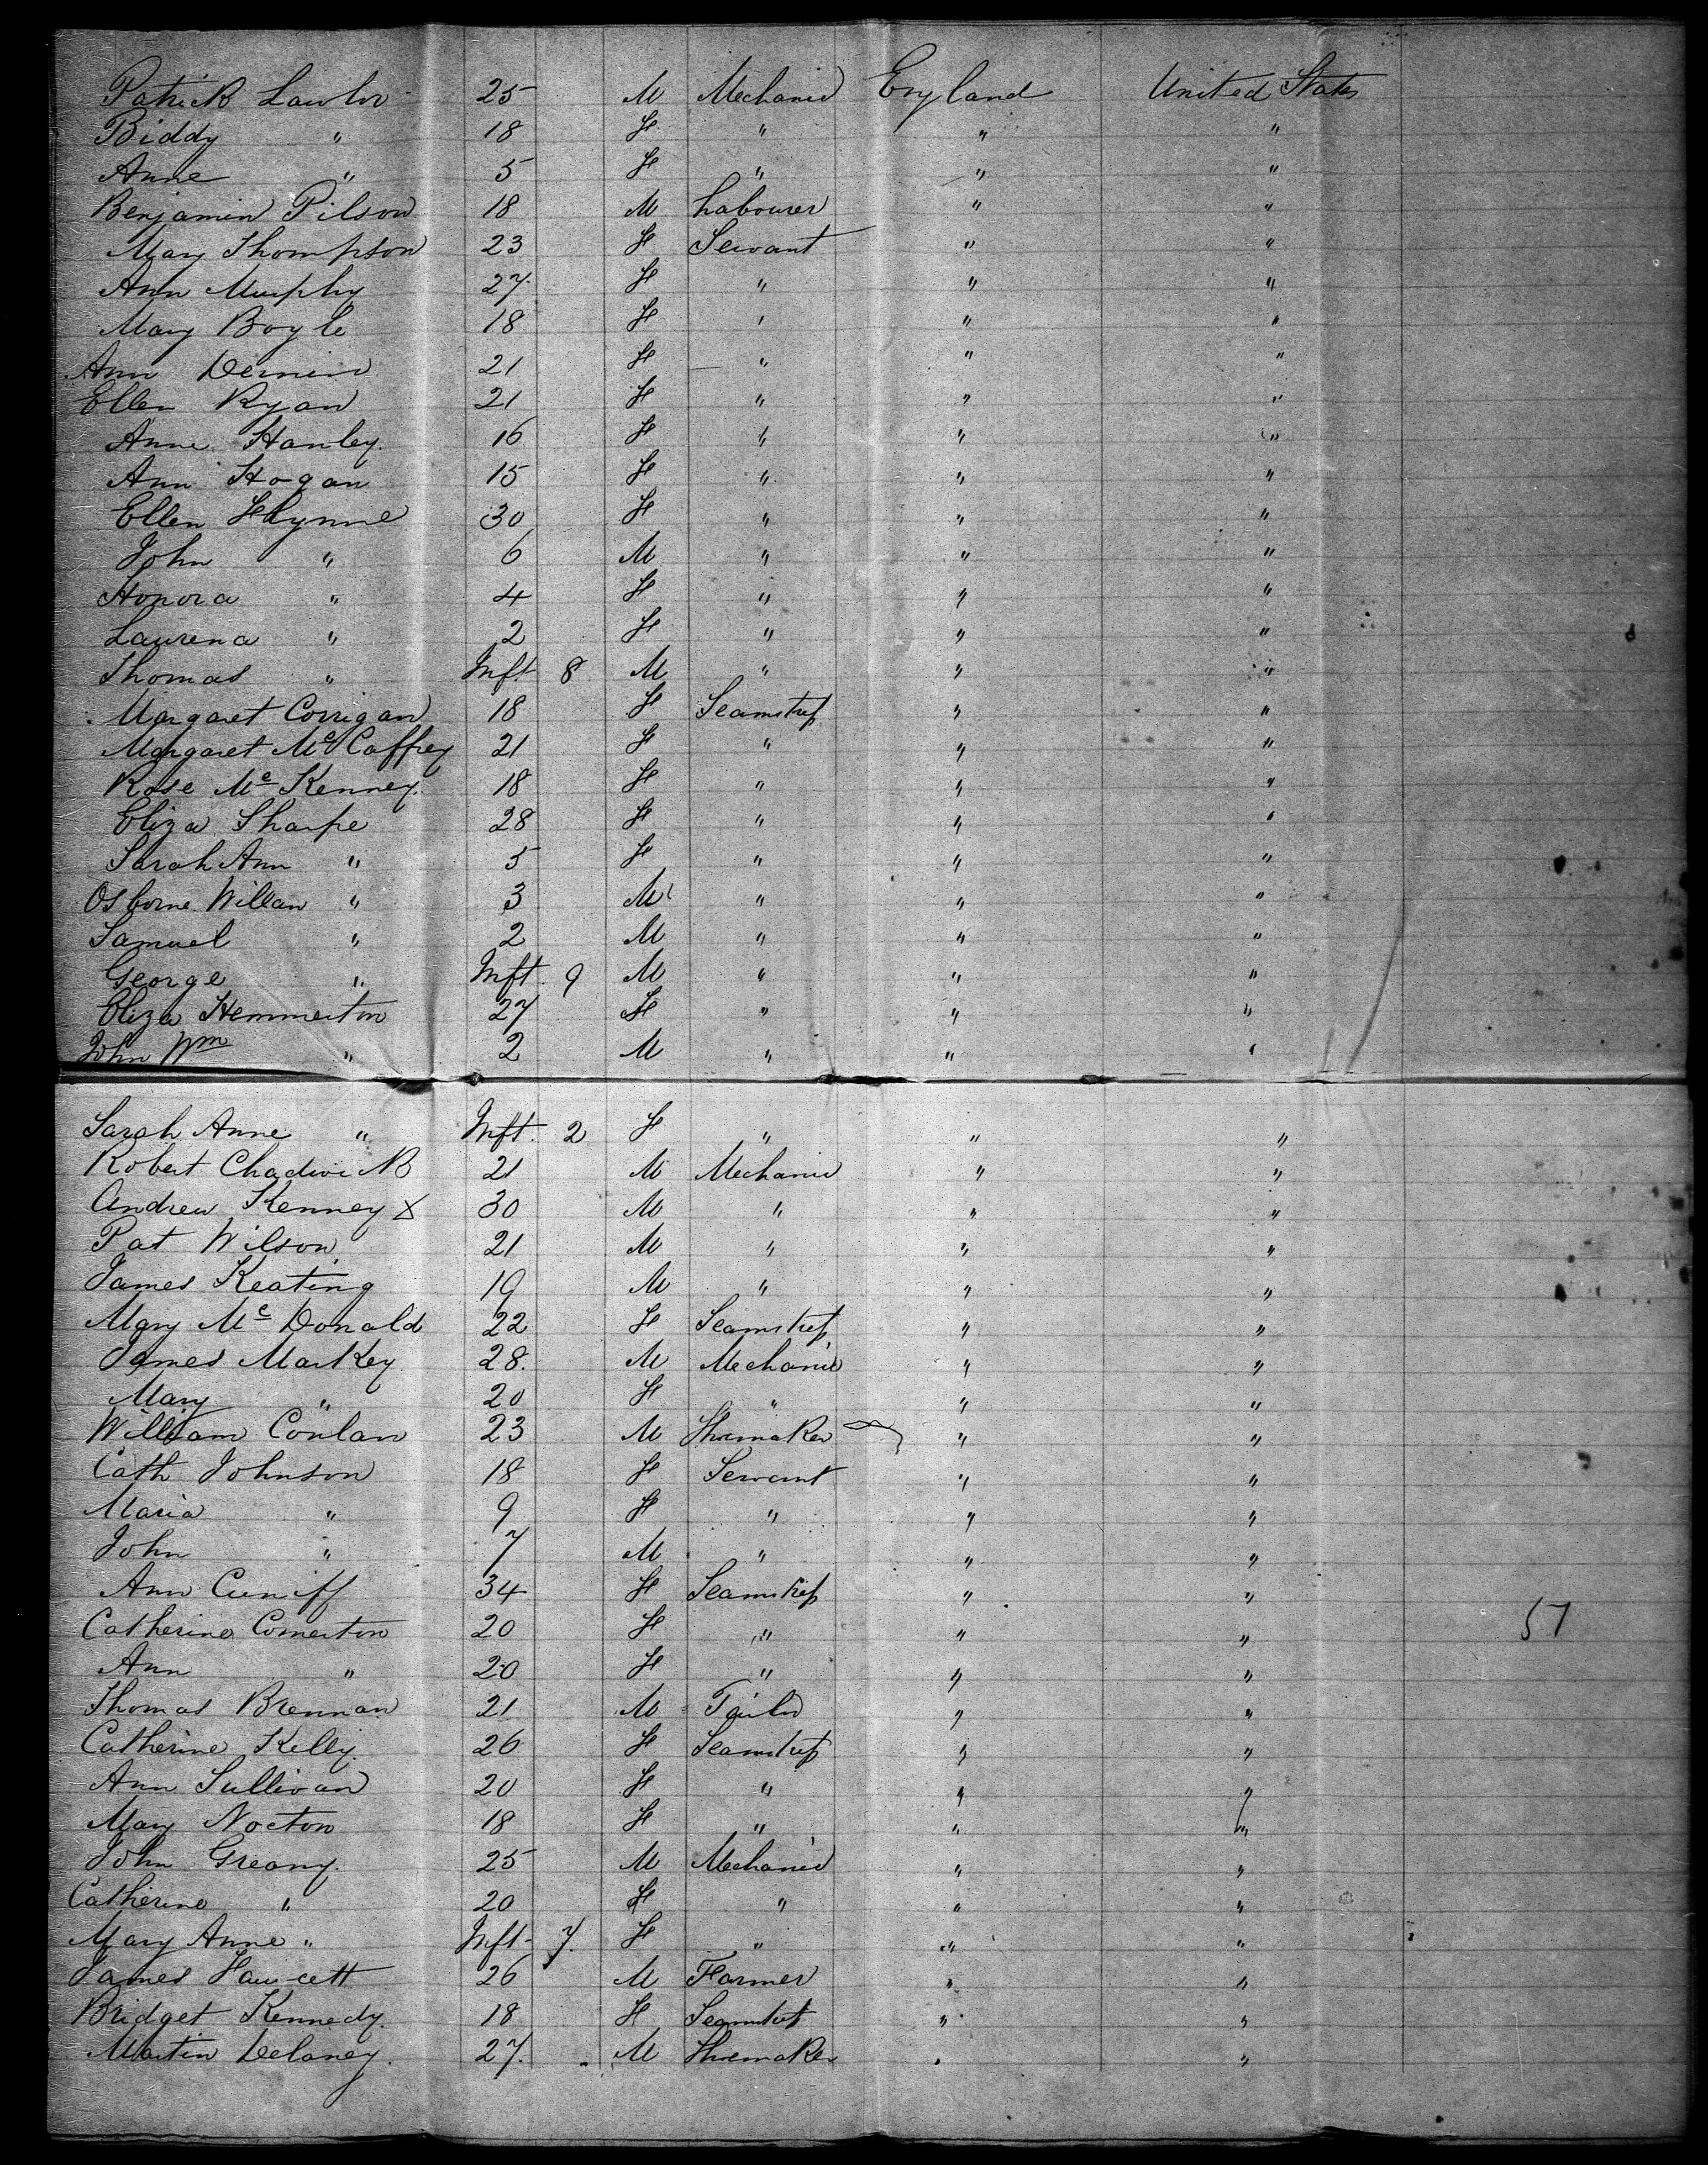 Patrick Lawlor 25 M Mechanic England United States
Biddy " 18 F " " "
Anne " 5 F " " "
Benjamin Pilson 18 M Labourer " "
Mary Thompson 23 F Servant " "
Ann Murphy 27 F " " "
Mary Boyle 18 F " " "
Ann 21 F " " "
Ellen Ryan 21 F " " "
Anne Hanley 16 F " " "
Ann Hogan 15 F " " "
Ellen Flynne 30 F " " "
John " 6 M " " "
Honora " 4 F " " "
Laurena " 2 F " " "
Thomas " Inft 8 M " " "
Margaret Corrigan 18 F Seamstress " "
Margaret Mc Caffrey 21 F " " "
Rose Mc Kenney 18 F " " "
Eliza Sharpe 28 F " " "
Sarah Ann " 5 F " " "
Osborne Willan " 3 M " " "
Samuel " 2 M " " "
George " Inft. 9 M " " "
Eliza Hemmerton 27 F " " "
John Wm " 2 M " " "
Sarah Anne " Inft. 2 F " " "
Robert Chadwick 21 M Mechanic " "
Andrew Kenney X 30 M " " "
Pat Wilson 21 M " " "
James Keating 19 M " " "
Mary Mc Donald 22 F Seamstress " "
James Markey 28. M Mechanic " "
Mary " 20 F " " "
William Conlan 23 M Shoemaker " "
Cath Johnson 18 F Servant " "
Maria " 9 F " " "
John " 7 M " " "
Ann Cuniff 34 F Seamstress " "
Catherine Comerton 20 F " " " 57
Ann " 20 F " " "
Thomas Brennan 21 M Tailor " "
Catherine Kelly 26 F Seamstress " "
Ann Sullivan 20 F " " "
Mary Nocton 18 F " " "
John Greany. 25 M Mechanic " "
Catherine " 20 F " " "
Mary Anne " Inft. 7. F " " "
James Fawcett 26 M Farmer " "
Bridget Kennedy. 18 F Seamstress " "
Martin Delaney. 27. M Shoemaker " "